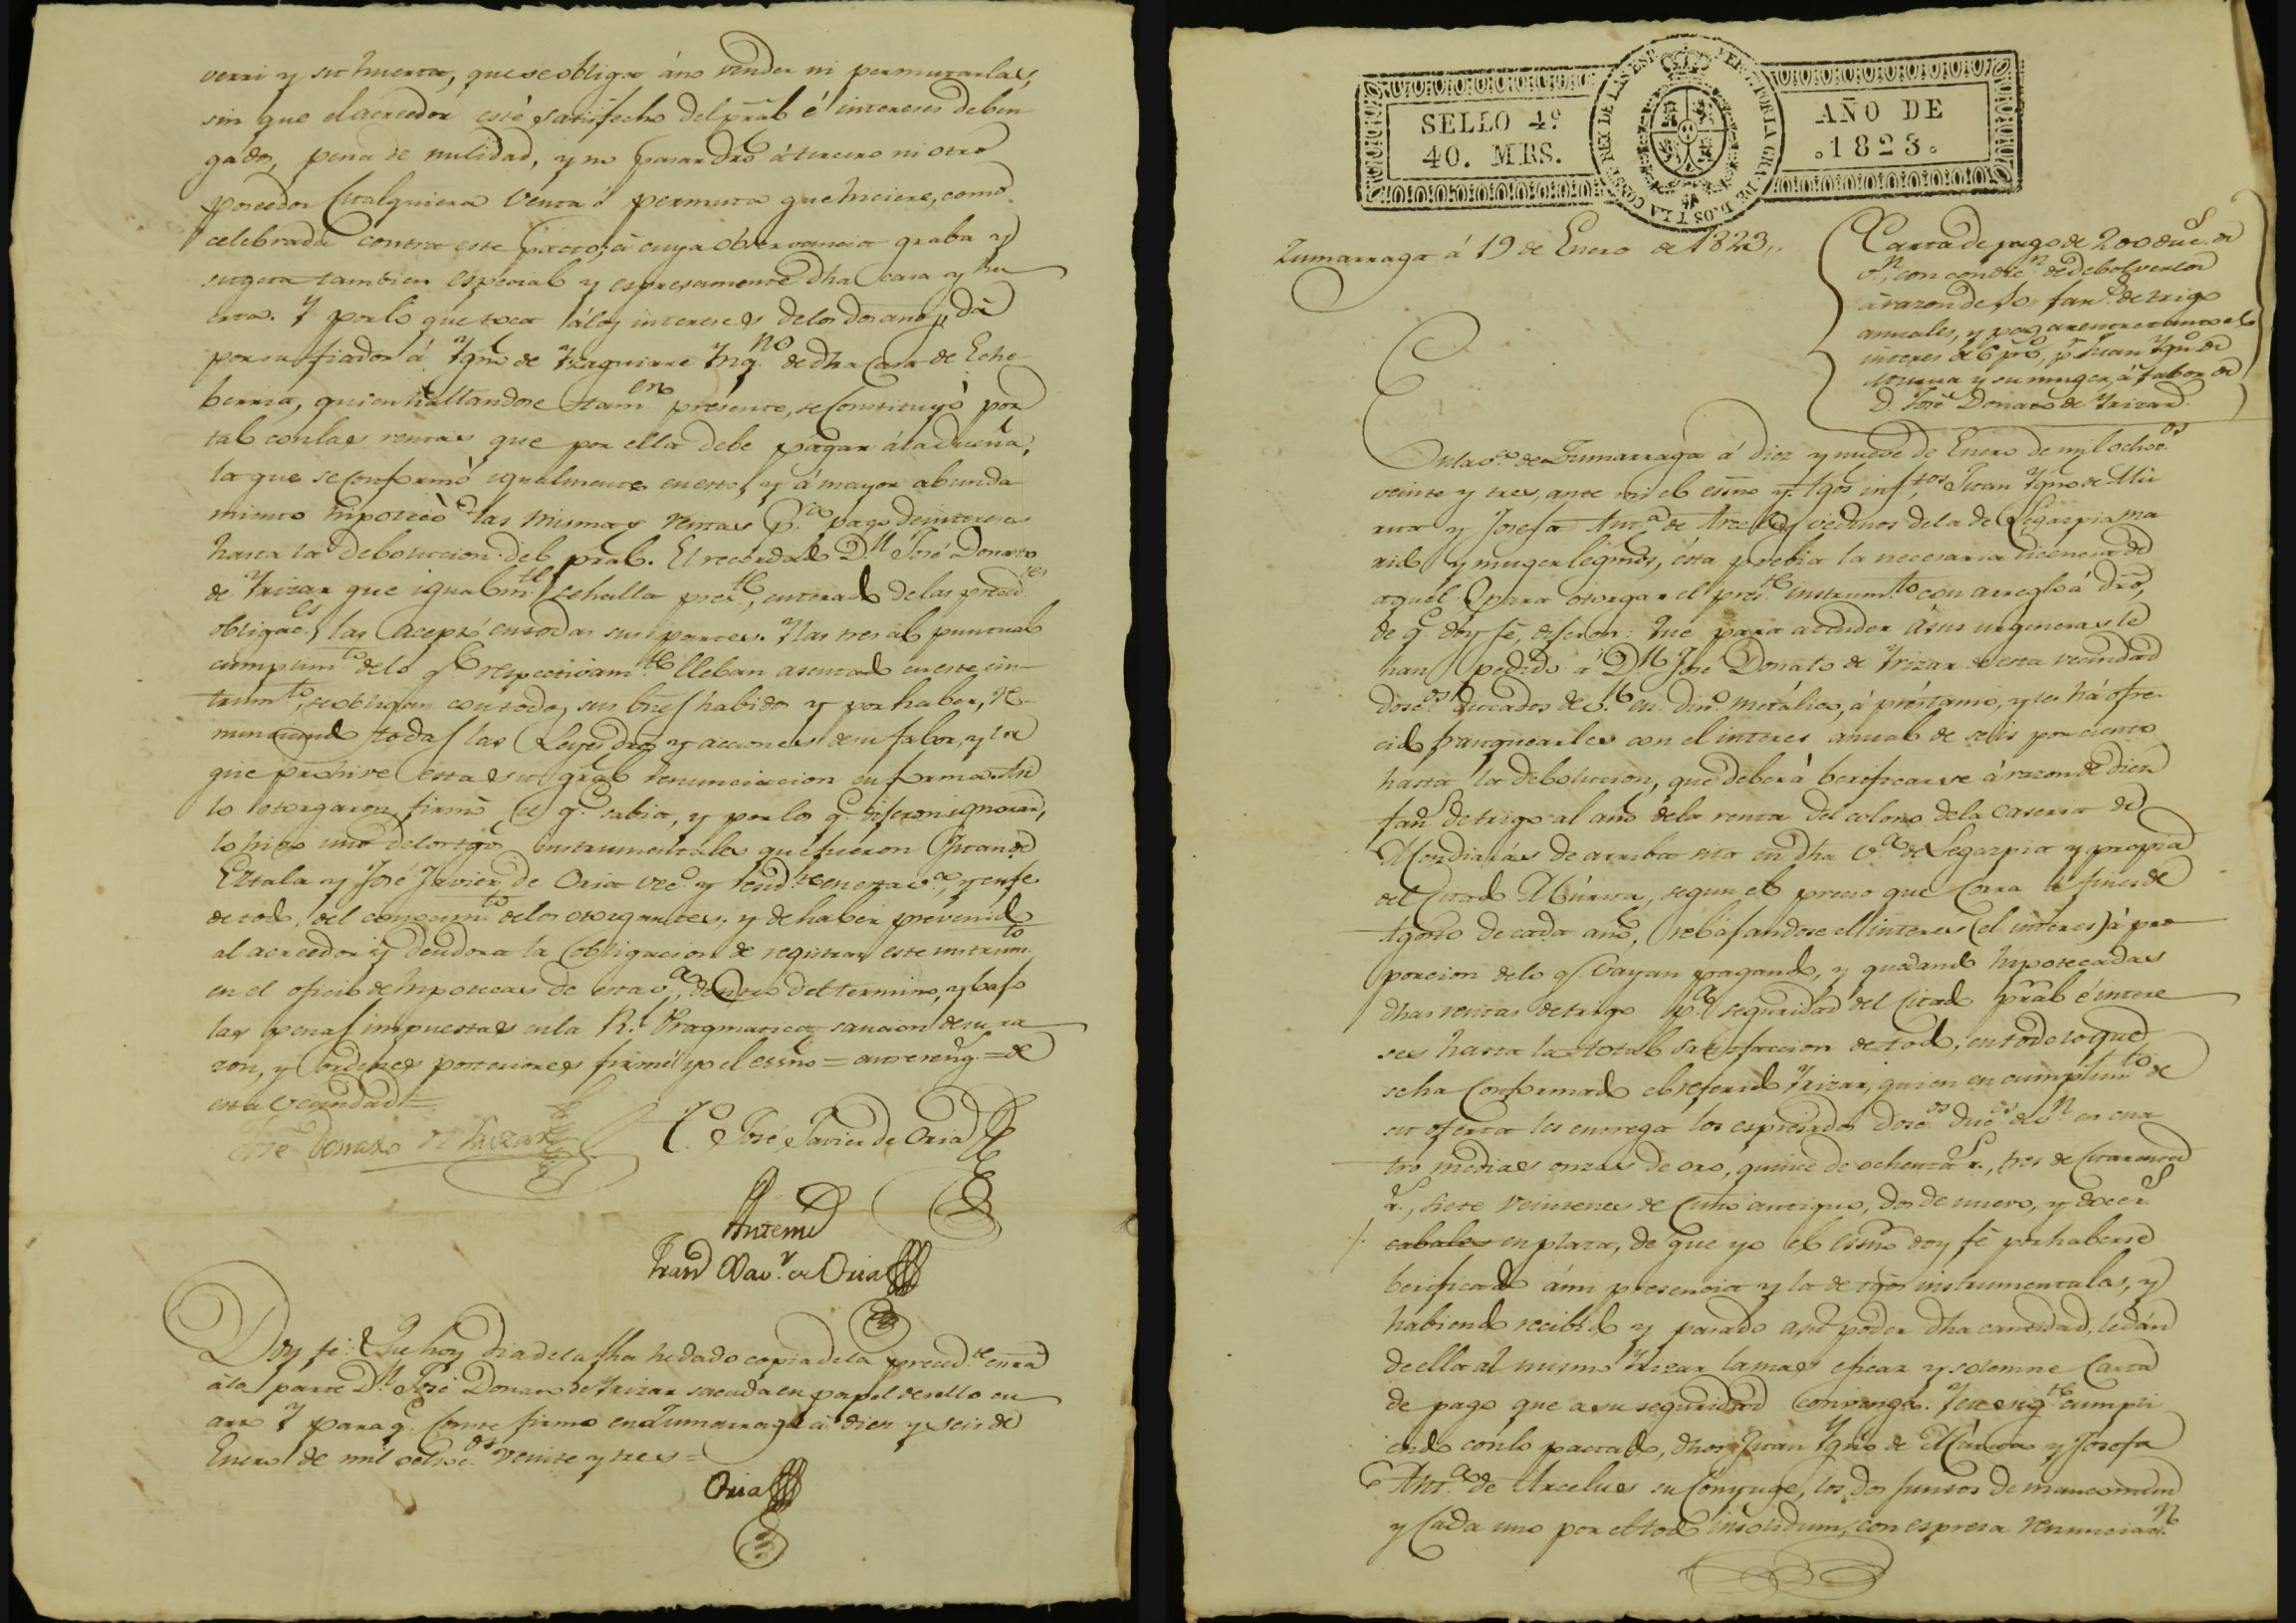 verri y su huerta, que se obliga áno vender ni permutarlas,
sin que el acreedor esté satisfecho del pral é intereses deben
gados, pena de nulidad, y no pasar dro á tercero ni otro
poseedor Cualquiera Venta ó permuta que hiciere, como
celebrada contra este pacto; á cuya observancia graba y
sugeta tambien especial y espresamente dha casa y hu
erta. Y por lo que toca álos intereses de los dos años, dá
por su fiador á Ygn.º de Yzaguirre Ynq.no de dha Casa de Eche
berria, quien hallandose tam.en presente, se Constituyó por
tal con las rentas que por ella debe pagar á la dueña;
la que se Conformó igualmente en esto, y á mayor abunda
miento hipotecó las mismas rentas p.ª pago de intereses
hasta la debolucion del pral. El recordado D.n José Donato
de Yrizar que igualm.te se halla pres.te, enterado de las preced.tes
obligac.es, las aceptó en todas sus partes. Y las tres al puntual
cumplim.to de lo q.e respectivam.te lleban asentado en este ins
trum.to, se obligan con todos sus bnes habidos y por haber, re-
nunciando todas las Leyes dros y acciones de su fabor, y la
que prohive esta es su gral renunciacion en forma. Asi
lo otorgaron, firmó el q.e sabia, y por los q.e digeron ignorar,
lo hizo uno delos tgos instrumentales que fueron Juan de
Eztala y José Javier de Oria vec.s y resid.tes en esta v.ª, y en fe
de todo, del conocim.to delos otorgantes, y de haber prevenido
al acreedor y deudora la Obligacion de registrar este instrum.to
en el oficio de hipotecas de esta v.ª, dentro del termino, y bajo
las penas impuestas en la R.l Pragmatica sancion de su ra
zon, y Ordenes posteriores firmé yo el essno = entrereng.s = de
esta vecindad =
José Donato de Yrizar T.º José Javier de Oria
Antemi
Fran.co Xav.r de Oria
Doy fé: Que hoy dia de la fha he dado copia de la preced.te essra
ála parte D.n José Donato de Yrizar sacada en papel de sello cu
arto Y para q.e Conste firmo en Zumarraga á diez y seis de
Enero de mil ochoc.os veinte y tres =
Oria
SELLO 4º
40. MRS.
AÑO DE
1823.
Zumarraga á 19 de Enero de 1823.
Carta de pago de 200 duc.s de
v.n, con condic.n de debolverlos
á razon de 10 fan.s de trigo
anuales, y pagar entretanto el
interes de 6 p.rº, p.r Juan Ygn.º de
Murua y su muger, á fabor de
D. José Donato de Yrizar.
En la v.ª de Zumarraga á diez y nueve de Enero de mil ochoc.os
veinte y tres, ante mi el essno y tgos infr.tos Juan Ygn.º de Mu
rua y Josefa Ant.ª de Arcelus vecinos dela de Legazpia ma
rido y muger legmos, ésta prebia la necesaria licencia de
aquel para otorgar el pres.te instrum.to con arreglo á dro,
de q.e doy fé, digeron: Que para atender á sus urgencias le
han pedido á D.n José Donato de Yrizar de esta vecindad
dosc.os ducados de v.n en din.º metálico, á préstamo, y les há ofre-
cido franquearles con el interes anual de seis por ciento
hasta la debolucion, que deberá berificarse á razon de diez
fan.s de trigo al año dela renta del colono dela caseria de
Mendiarás de arriba sita en dha v.ª de Legazpia y propia
del Citado Múrua, segun el precio que Corra á fines de
Agosto de cada año, rebajandose el interes (el interes) á pro
porcion delo q.e Vayan pagando, y quedando hipotecadas
dhas rentas de trigo p.ª seguridad del Citado pral é intere
ses hasta la total satisfaccion de todo; en todo lo que
se ha Conformado el referido Yrizar, quien en cumplim.to de
su oferta les entrega los espresados dosc.os duc.os de v.n en cua
tro medias onzas de oro, quince de ochenta r.s, tres de Cuarenta
r.s, siete veintenes de Cuño antiguo, dos de nuevo, y doce r.s
cabales en plata, de que yo el Essno doy fé por haberse
berificado ámi presencia y la de tgos instrumentales, y
habiendo recibido y pasado a su poder dha cantidad, le dán
de ella al mismo Yrizar la mas eficaz y solemne Carta
de pago que a su seguridad convenga. Y en consig.te cumpli
endo con lo pactado, dhos Juan Ygn.º de Múrua y Josefa
Ant.ª de Arcelus su Conyuge, los dos juntos de mancomun
y Cada uno por el todo insolidum, con espresa renunciac.n